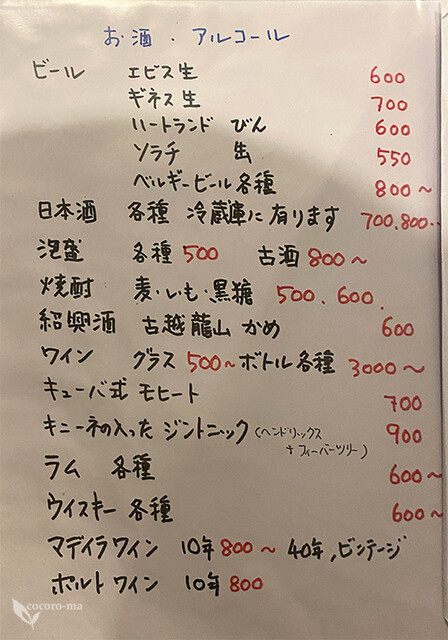 お酒・アルコール
ビール エビス生 600
ギネス生 700
ハートランド びん 600
ソラチ 生 550
ベルギービール各種 800〜
日本酒 各種 冷蔵庫に有ります 700.800〜
泡盛 各種 500 古酒 800〜
焼酎 麦・いも・黒糖 500.600.
紹興酒 古越龍山 かめ 600
ワイン グラス 500〜 ボトル各種 3000〜
キューバ式 モヒート 700
キニーネの入った ジントニック (ヘンドリックス 900
+フィーバーツリー)
ラム 各種 600〜
ウイスキー 各種 600〜
マデイラワイン 10年 800〜 40年,ビンテージ
ポルトワイン 10年 800
cocoro-ma